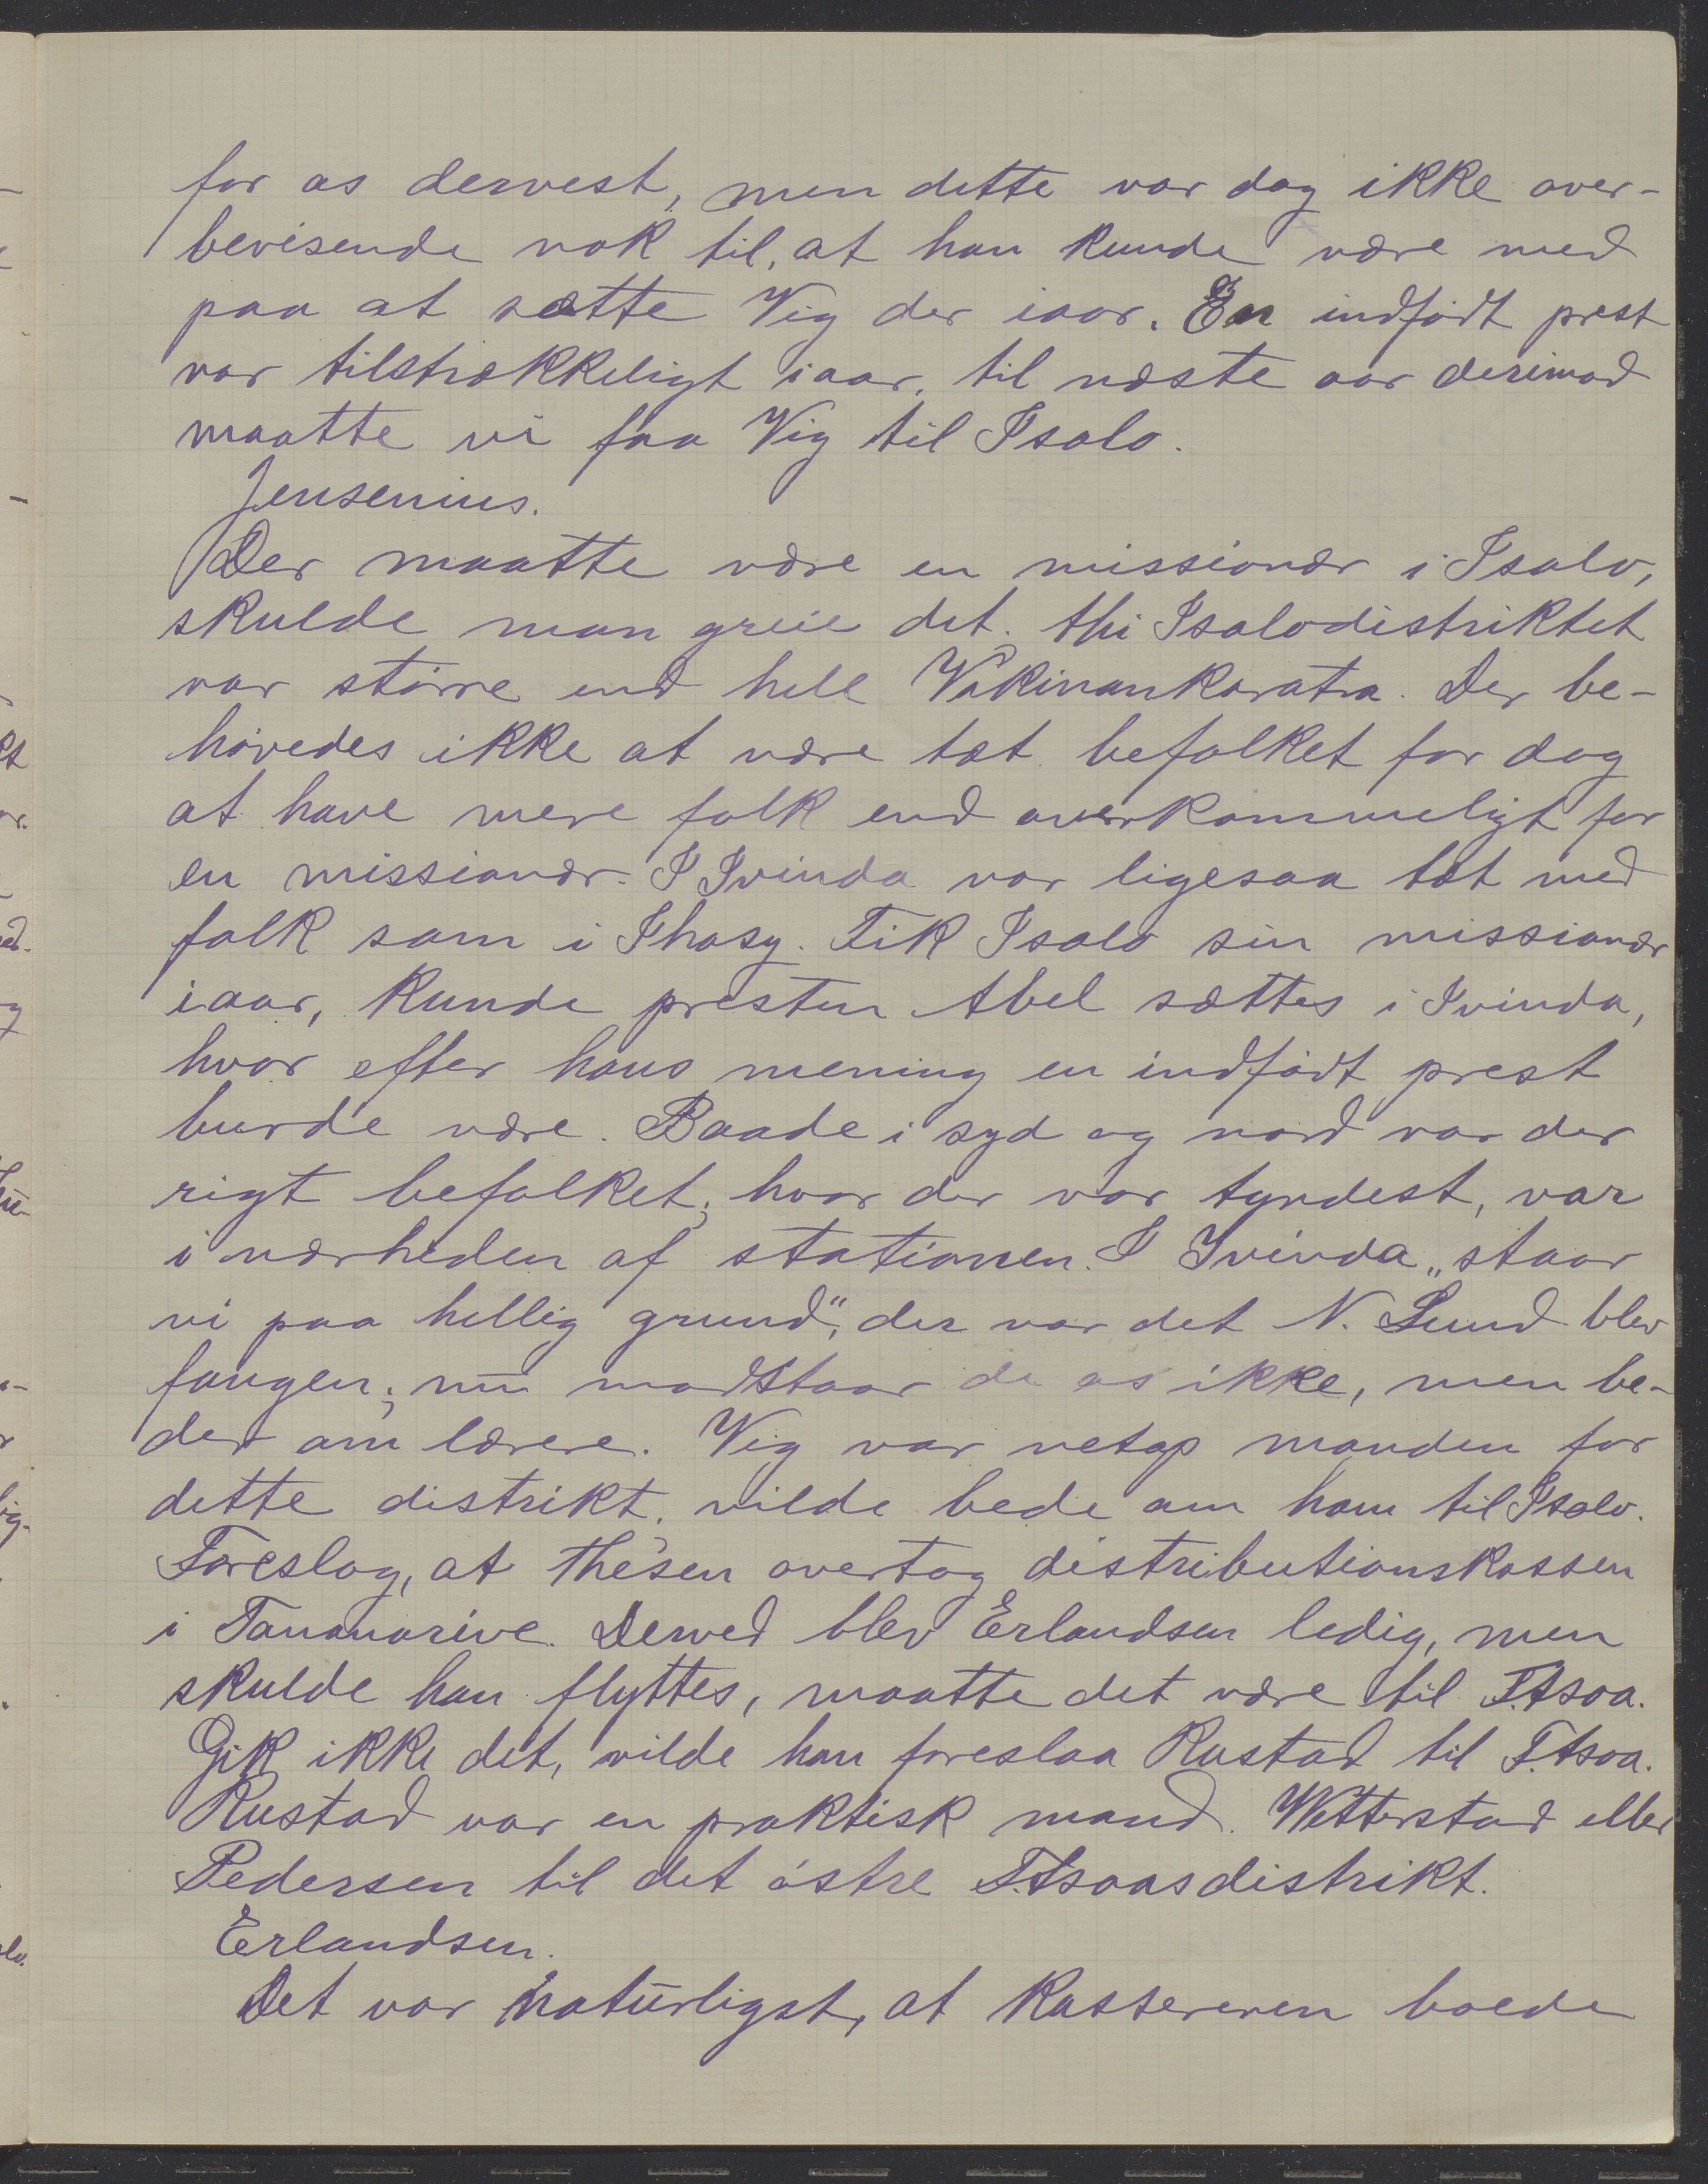 for os dervest, men dette var dog ikke over-
bevisende nok til, at han kunde være med
paa at sætte Vig der iaar. En indfødt prest
var tilstrækkeligt iaar, til næste aar derimod
maatte vi faa Vig til Isalo.
Jensenius.
Der maatte være en missionær i Isalo,
skulde man greie det. thi Isalodistriktet
var större end hele Vakinankaratra. Der be-
hövedes ikke at være tæt befolket for dog
at have mere folk end overkommeligt for
en missionær. I Ivinda var ligesaa tæt med
folk som i Ihosy. Fik Isalo sin missionær
iaar, kunde presten Abel sættes i Ivinda,
hvor efter hans mening en indfødt prest
burde være. Baade i syd og nord var der
rigt befolket; hvor der var tyndest, var
i nærheden af stationen. I Ivinda „staar
vi paa hellig grund", der var det N. Lund blev
fangen; nu modstaar de os ikke, men be-
der om lærere. Vig var netop manden for
dette distrikt. vilde bede om ham til Isalo.
Foreslog, at Thesen overtog distributionskassen
i Tananarive. Derved blev Erlandsen ledig, men
skulde han flyttes, maatte det være til F.tsoa.
Gik ikke det, vilde han foreslaa Rustad til F.tsoa.
Rustad var en praktisk mand. Wetterstad eller
Pedersen til det östre F.tsoasdistrikt.
Erlandsen.
Det var naturligst, at kassereren boede